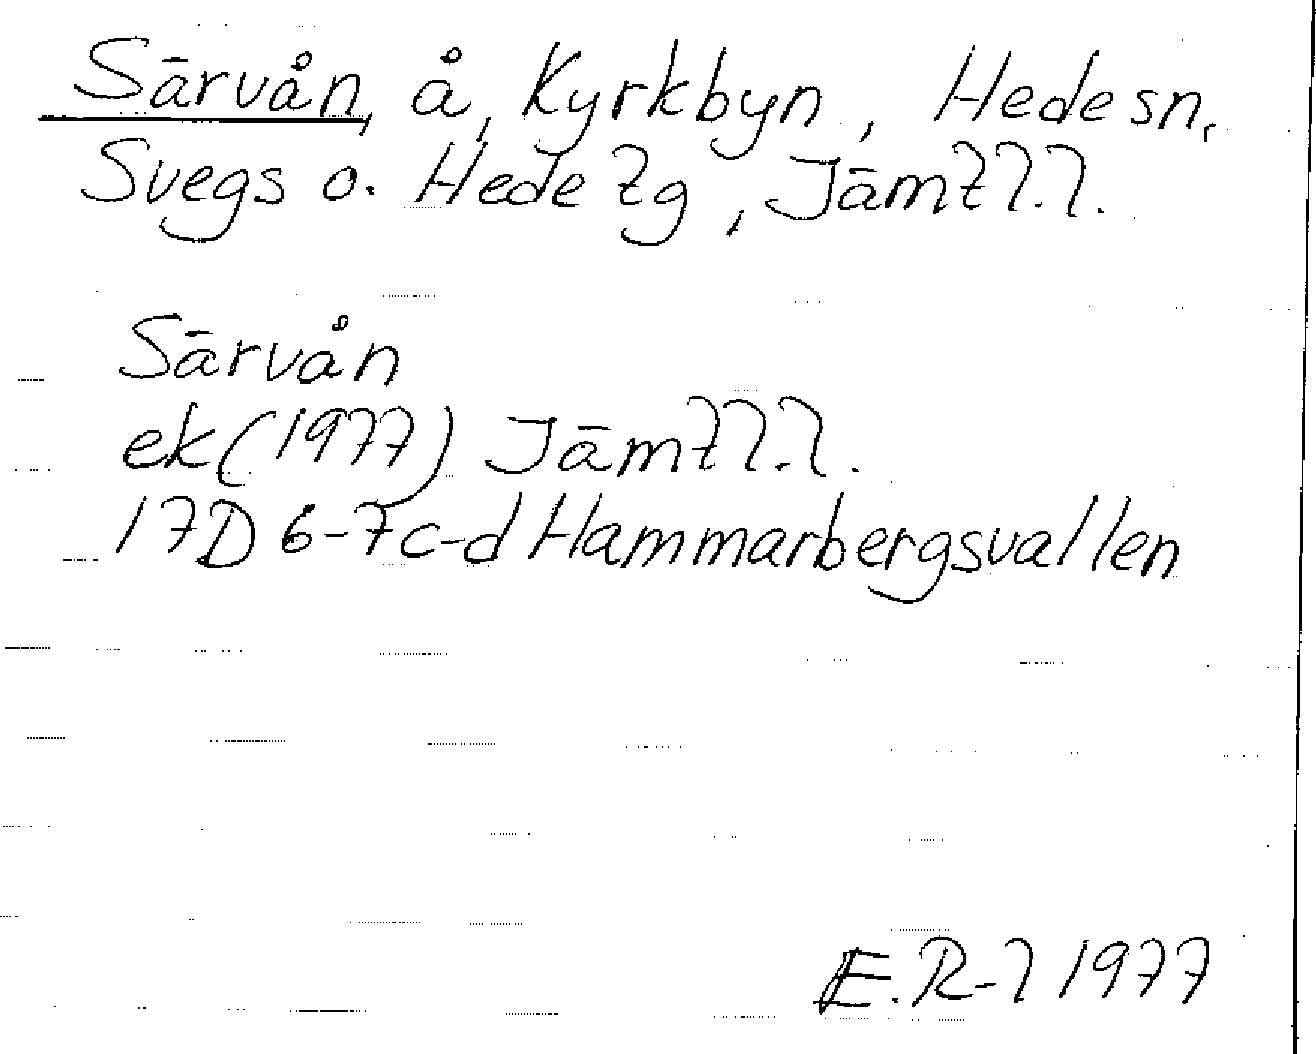 Särvån, å, Kyrkbyn, Hede sn,
Svegs o. Hede tg, Jämtl.l.
Särvån
ek (1977) Jämtl.l.
17D 6-7c-d Hammarbergsvallen
E.R-l 1977